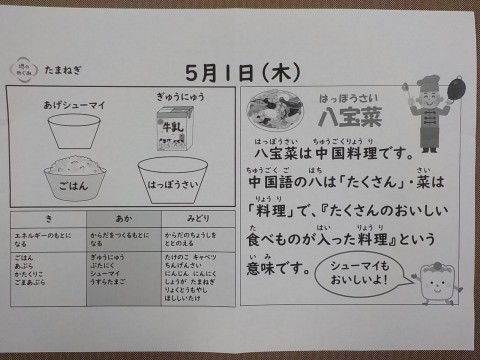 地のめぐみ
たまねぎ
5月1日(木)
あげシューマイ
ぎゅうにゅう
牛乳
ごはん
はっぽうさい
き
あか
みどり
エネルギーのもとに
なる
からだをつくるもとに
なる
からだのちょうしを
ととのえる
ごはん
あぶら
かたくりこ
ごまあぶら
ぎゅうにゅう
ぶたにく
シューマイ
うすらたまご
たけのこ キャベツ
ちんげんさい
にんじん にんにく
しょうが たまねぎ
りょくとうもやし
ほししいたけ
はっぽうさい
八宝菜
はっぽうさい ちゅうごくりょうり
八宝菜は中国料理です。
ちゅうごくご はち さい
中国語の八は「たくさん」・菜は
りょうり
「料理」で、『たくさんのおいしい
た はい りょうり
食べものが入った料理』という
いみ
意味です。
シューマイも
おいしいよ!